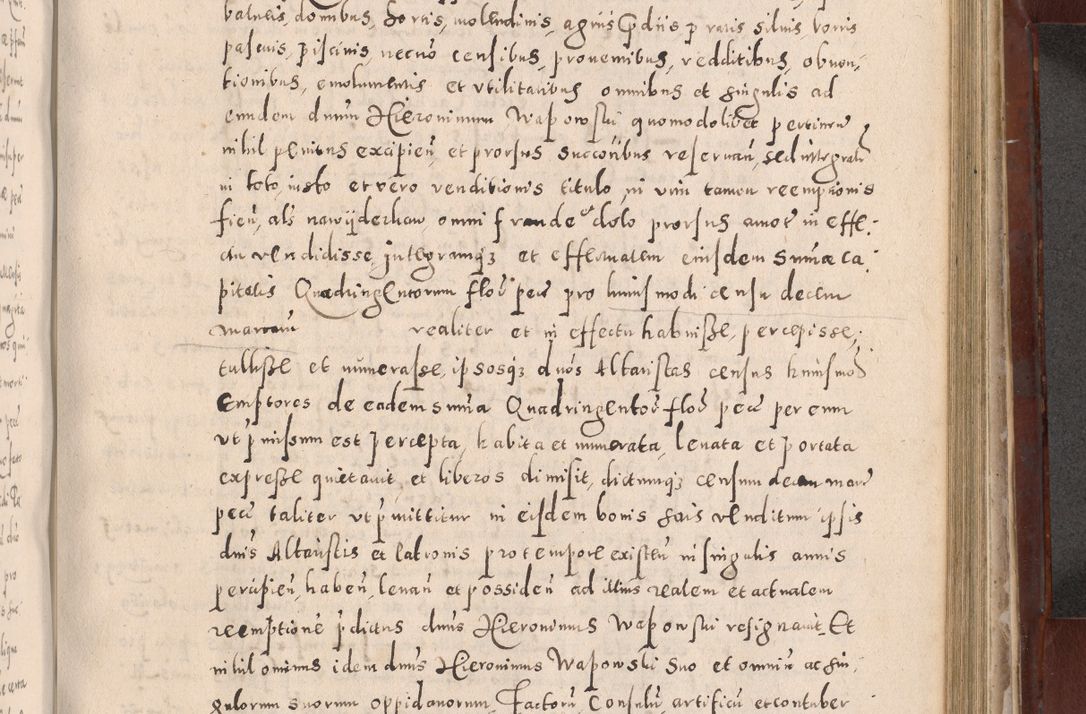 balneis, domibus, hortis, molendinis, agris p̄diis p ratis siluis borris
pascuis, piscinis, necnō censibus, prouentibus, redditibus, obuen,
tionibus, emolumentis et vtilitatibus omnibus et singulis ad
eundem dnūm Hieronimum Wapowski quomodolibet pertinen̄
nihil penitus excipien̄, et prorsus succoribus reseruan̄, sed integralr̄
in toto, iusto et vero venditionis titulo, in vim tamen reemptionis
fien̄, als nawyderkaw omni fraude et dolo prorsus amot̄ in effe:
ctu vendidisse, integramq̄ et effectualem eiusdem Summæ ca:
pitalis Quadringentorum floꝝ pec̄ pro huiusmodi censu decem
marcarū realiter et in effectu habuisse, percepisse,
tullisse et numerasse, ipsosq̄ duos Altaristas census huiusmoꝺ
Emptores de eadem suma Quadringentoꝝ floꝝ pec̄ per eum
vt p̄missum est percepta, habita et numerata, leuata et portata
expresse quietauit et liberos dimisit, dictumq̄ censum decem marc̄
pec̄ taliter vt p̄mittitur in eisdem bonis suis venditum ipsis
dnis Altaristis et latronis pro tempore existen̄ in singulis annis
percipien̄, haben̄, leuan̄ et possiden̄ ad illius realem et actualem
reemptionē p̄dictus dnus Hieronimus Wapowski resignauit. Et
nihilominus idem dnus Hieronimus Wapowski suo et omniū ac sin,
gulorum suorum oppidanorum, Factorū, Consulū, artificū et contuber